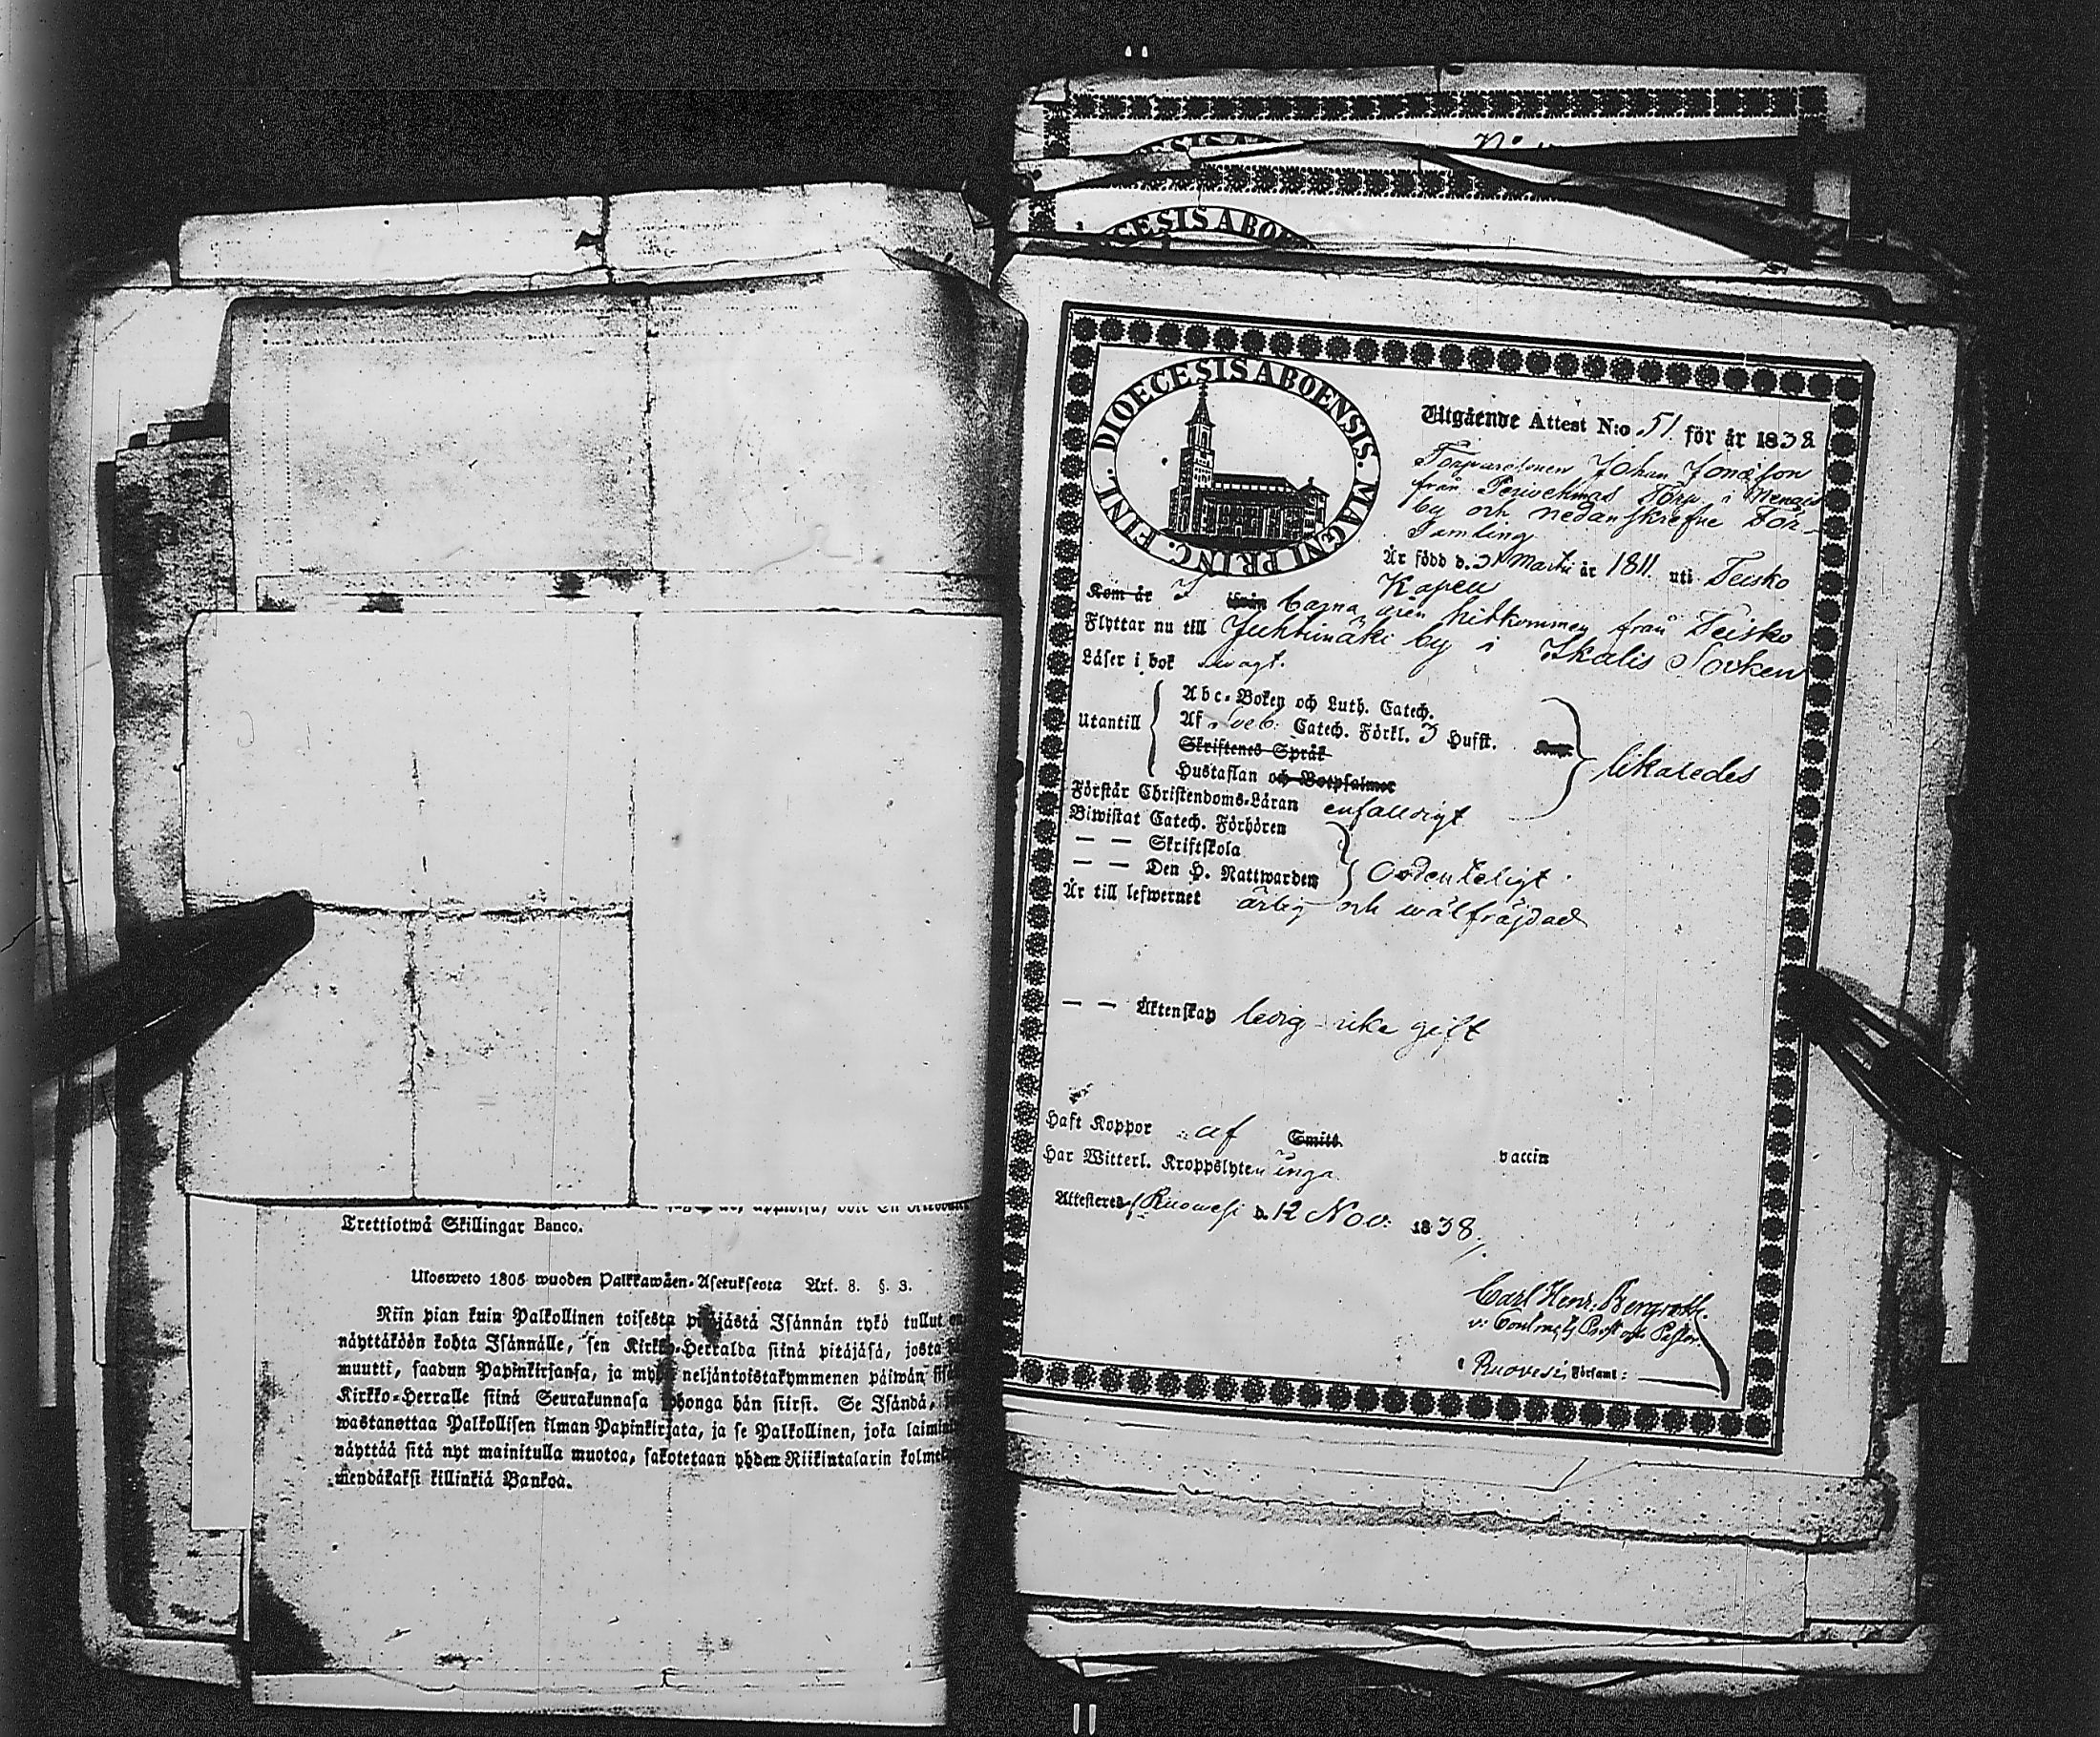 Trettiotwå Skillingar Banco.
Ulosweto 1805 wuoden Palkkawäen-Asetuksesta Art. 8. §. 3.
Niin pian kuin Palkollinen toisesta pitäjästä Isännän tykö tullut
näyttäköön kohta Isännälle, sen Kirkko-Herralda siinä pitäjäsä, josta
muutti, saadun Papinkirjansa, ja myös neljäntoistakymmenen päiwän
Kirkko-Herralle siinä Seurakunnasa johonga hän siirsi. Se Isändä,
wastanottaa Palkollisen ilman Papinkirjata, ja se Palkollinen, joka
näyttää sitä nyt mainitulla muotoa, sakotetaan yhden Riikintalarin
mendäkaksi killinkiä Bankoa.
CESIS ABO
DIOECESIS ABOENSIS. MAGNI PRINC. FINL.
Utgående Attest N:o 51 för år 1838
Johan Jonasson
från Torp i
by och nedanskrefne För-
samling
Är född d. 31 Martii år 1811. uti Teisko
Kapell
Kom år från barna åren hitkommen från Teisko
Flyttar nu till Juhtimäki by i Ikalis Socken
Läser i bok swagt.
Utantill
Abc-Boken och Luth. Catech.
Af Sveb. Catech. Förkl. 3 Hufst.
Skriftenes Språk
Hustaflan och Botpsalmer
likaledes
Förstår Christendoms-Läran enfaldigt
Biwistat Catech. Förhören
— — Skriftskola
— — Den H. Nattwarden
ordenteligt
Är till lefwernet ärlig och wälfräjdad
— — Äktenskap ledig icke gift
Haft Koppor af Smitt. vaccin
Har Witterl. Kroppslyten inga
Attesteres Ruowesi d. 12 Nov. 1838
Carl Henr. Bergroth
v. Contracts Prost och Pastor
i Ruovesi Församl: